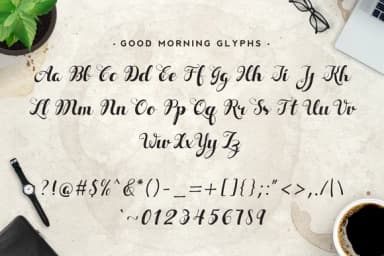 · GOOD MORNING GLYPHS ·
Aa Bb Cc Dd Ee Ff Gg Hh Ii Jj Kk
Ll Mm Nn Oo Pp Qq Rr Ss Tt Uu Vv
Ww Xx Yy Zz
?!@#$%^&*()-_=+[]{};:"<>,./|\
`~0123456789